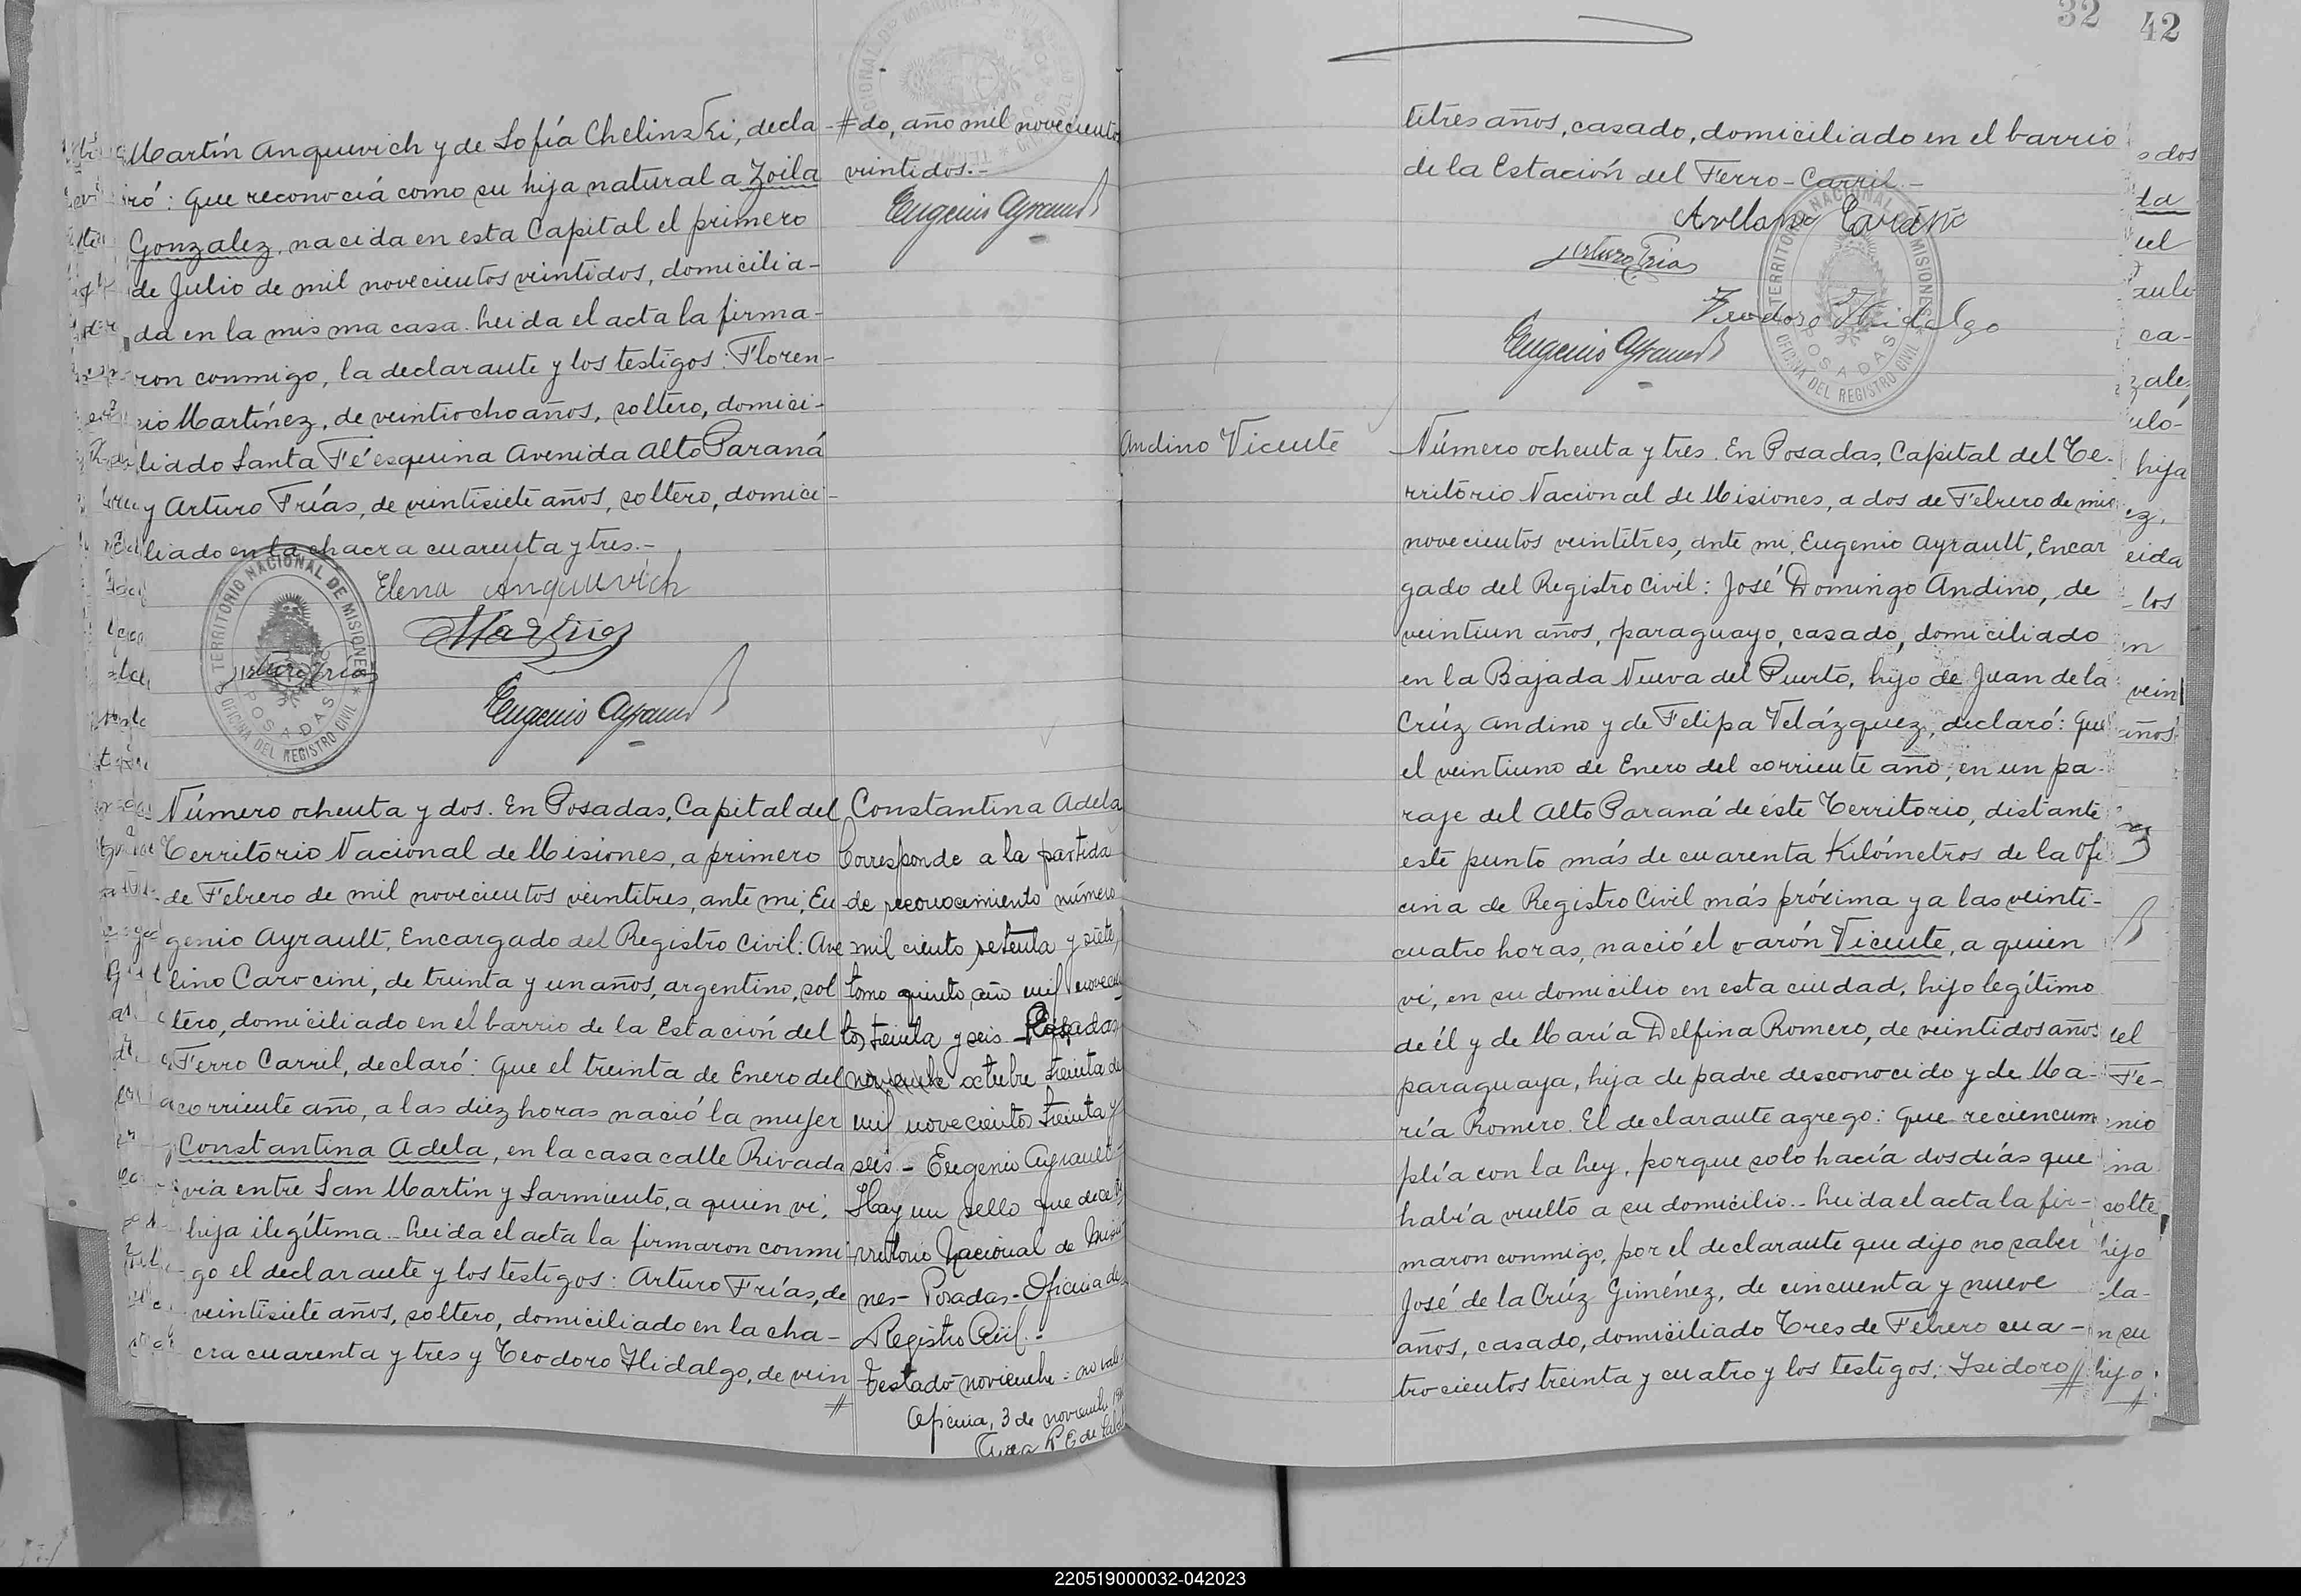 Martín Anquevich y de Sofía Chelinski, decla-
ró: Que reconocía como su hija natural a Zoila
Gonzalez, nacida en esta Capital el primero
de Julio de mil novecientos veintidos, domicilia-
da en la misma casa. Leida el acta la firma-
ron conmigo, la declarante y los testigos: Floren-
cio Martínez, de veintiocho años, soltero, domici-
liado Santa Fé esquina Avenida Alto Paraná
y Arturo Frías, de veintisiete años, soltero, domici-
liado en la chacra cuarenta y tres.-
Elena Anquevich
Martinez
Arturo Frias
Eugenio Ayrault
TERRITORIO NACIONAL DE MISIONES
POSADAS
OFICINA DEL REGISTRO CIVIL
#do, año mil novecientos
veintidos.-
Eugenio Ayrault
Número ochenta y dos. En Posadas, Capital del
Territorio Nacional de Misiones, a primero
de Febrero de mil novecientos veintitres, ante mi, Eu-
genio Ayrault, Encargado del Registro Civil: Ave
lino Carocini, de treinta y un años, argentino, sol
tero, domiciliado en el barrio de la Estación del
Ferro Carril, declaró: Que el treinta de Enero del
corriente año, a las diez horas nació la mujer
Constantina Adela, en la casa calle Rivada
via entre San Martín y Sarmiento, a quien vi,
hija ilegítima.- Leida el acta la firmaron conmi-
go el declarante y los testigos: Arturo Frías, de
veintisiete años, soltero, domiciliado en la cha-
cra cuarenta y tres y Teodoro Hidalgo, de vein
#
Constantina Adela
Corresponde a la partida
de reconocimiento número
mil ciento setenta y siete,
tomo quinto año mil novecien
tos treinta y seis - Posadas
noviembre octubre treinta de
mil novecientos treinta y
seis - Eugenio Ayrault -
Hay un sello que dice Te
rritorio Nacional de Misio
nes - Posadas - Oficina de
Registro Civil.-
Testado - noviembre - no vale
Oficina, 3 de noviembre
32 42
titres años, casado, domiciliado en el barrio
de la Estación del Ferro-Carril.-
Avelino
Arturo Frias
Teodoro Hidalgo
Eugenio Ayrault
TERRITORIO NACIONAL DE MISIONES
POSADAS
OFICINA DEL REGISTRO CIVIL
Andino Vicente
Número ochenta y tres. En Posadas, Capital del Te-
rritorio Nacional de Misiones, a dos de Febrero de mil
novecientos veintitres, ante mi, Eugenio Ayrault, Encar
gado del Registro Civil: José Domingo Andino, de
veintiun años, paraguayo, casado, domiciliado
en la Bajada Nueva del Puerto, hijo de Juan de la
Crúz Andino y de Felipa Velázquez, declaró: Que
el veintiuno de Enero del corriente año, en un pa-
raje del Alto Paraná de éste Territorio, distante
este punto más de cuarenta Kilómetros de la Ofi
cina de Registro Civil más próxima y a las veinti-
cuatro horas, nació el varón Vicente, a quien
vi, en su domicilio en esta ciudad, hijo legítimo
de él y de María Delfina Romero, de veintidos años
paraguaya, hija de padre desconocido y de Ma-
ría Romero. El declarante agrego: Que recien cum
plía con la Ley, porque solo hacía dos días que
había vuelto a su domicilio.- Leida el acta la fir-
maron conmigo, por el declarante que dijo no saber
José de la Crúz Giménez, de cincuenta y nueve
años, casado, domiciliado Tres de Febrero cua-
trocientos treinta y cuatro y los testigos: Isidoro #
220519000032-042023